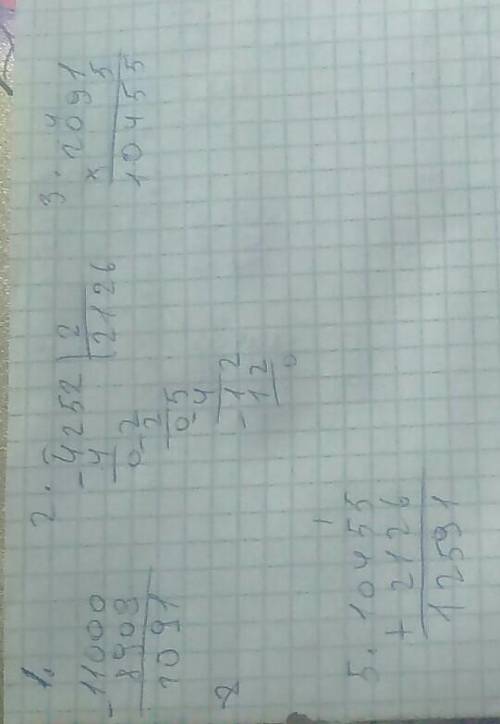 1.
-11000
8909
2091
2
2. -4252 | 2
4 | 2126
0-2
2
0-5
4
-12
12
0
3. 4
2091
x 5
10455
5. 1
10455
+ 2126
12591